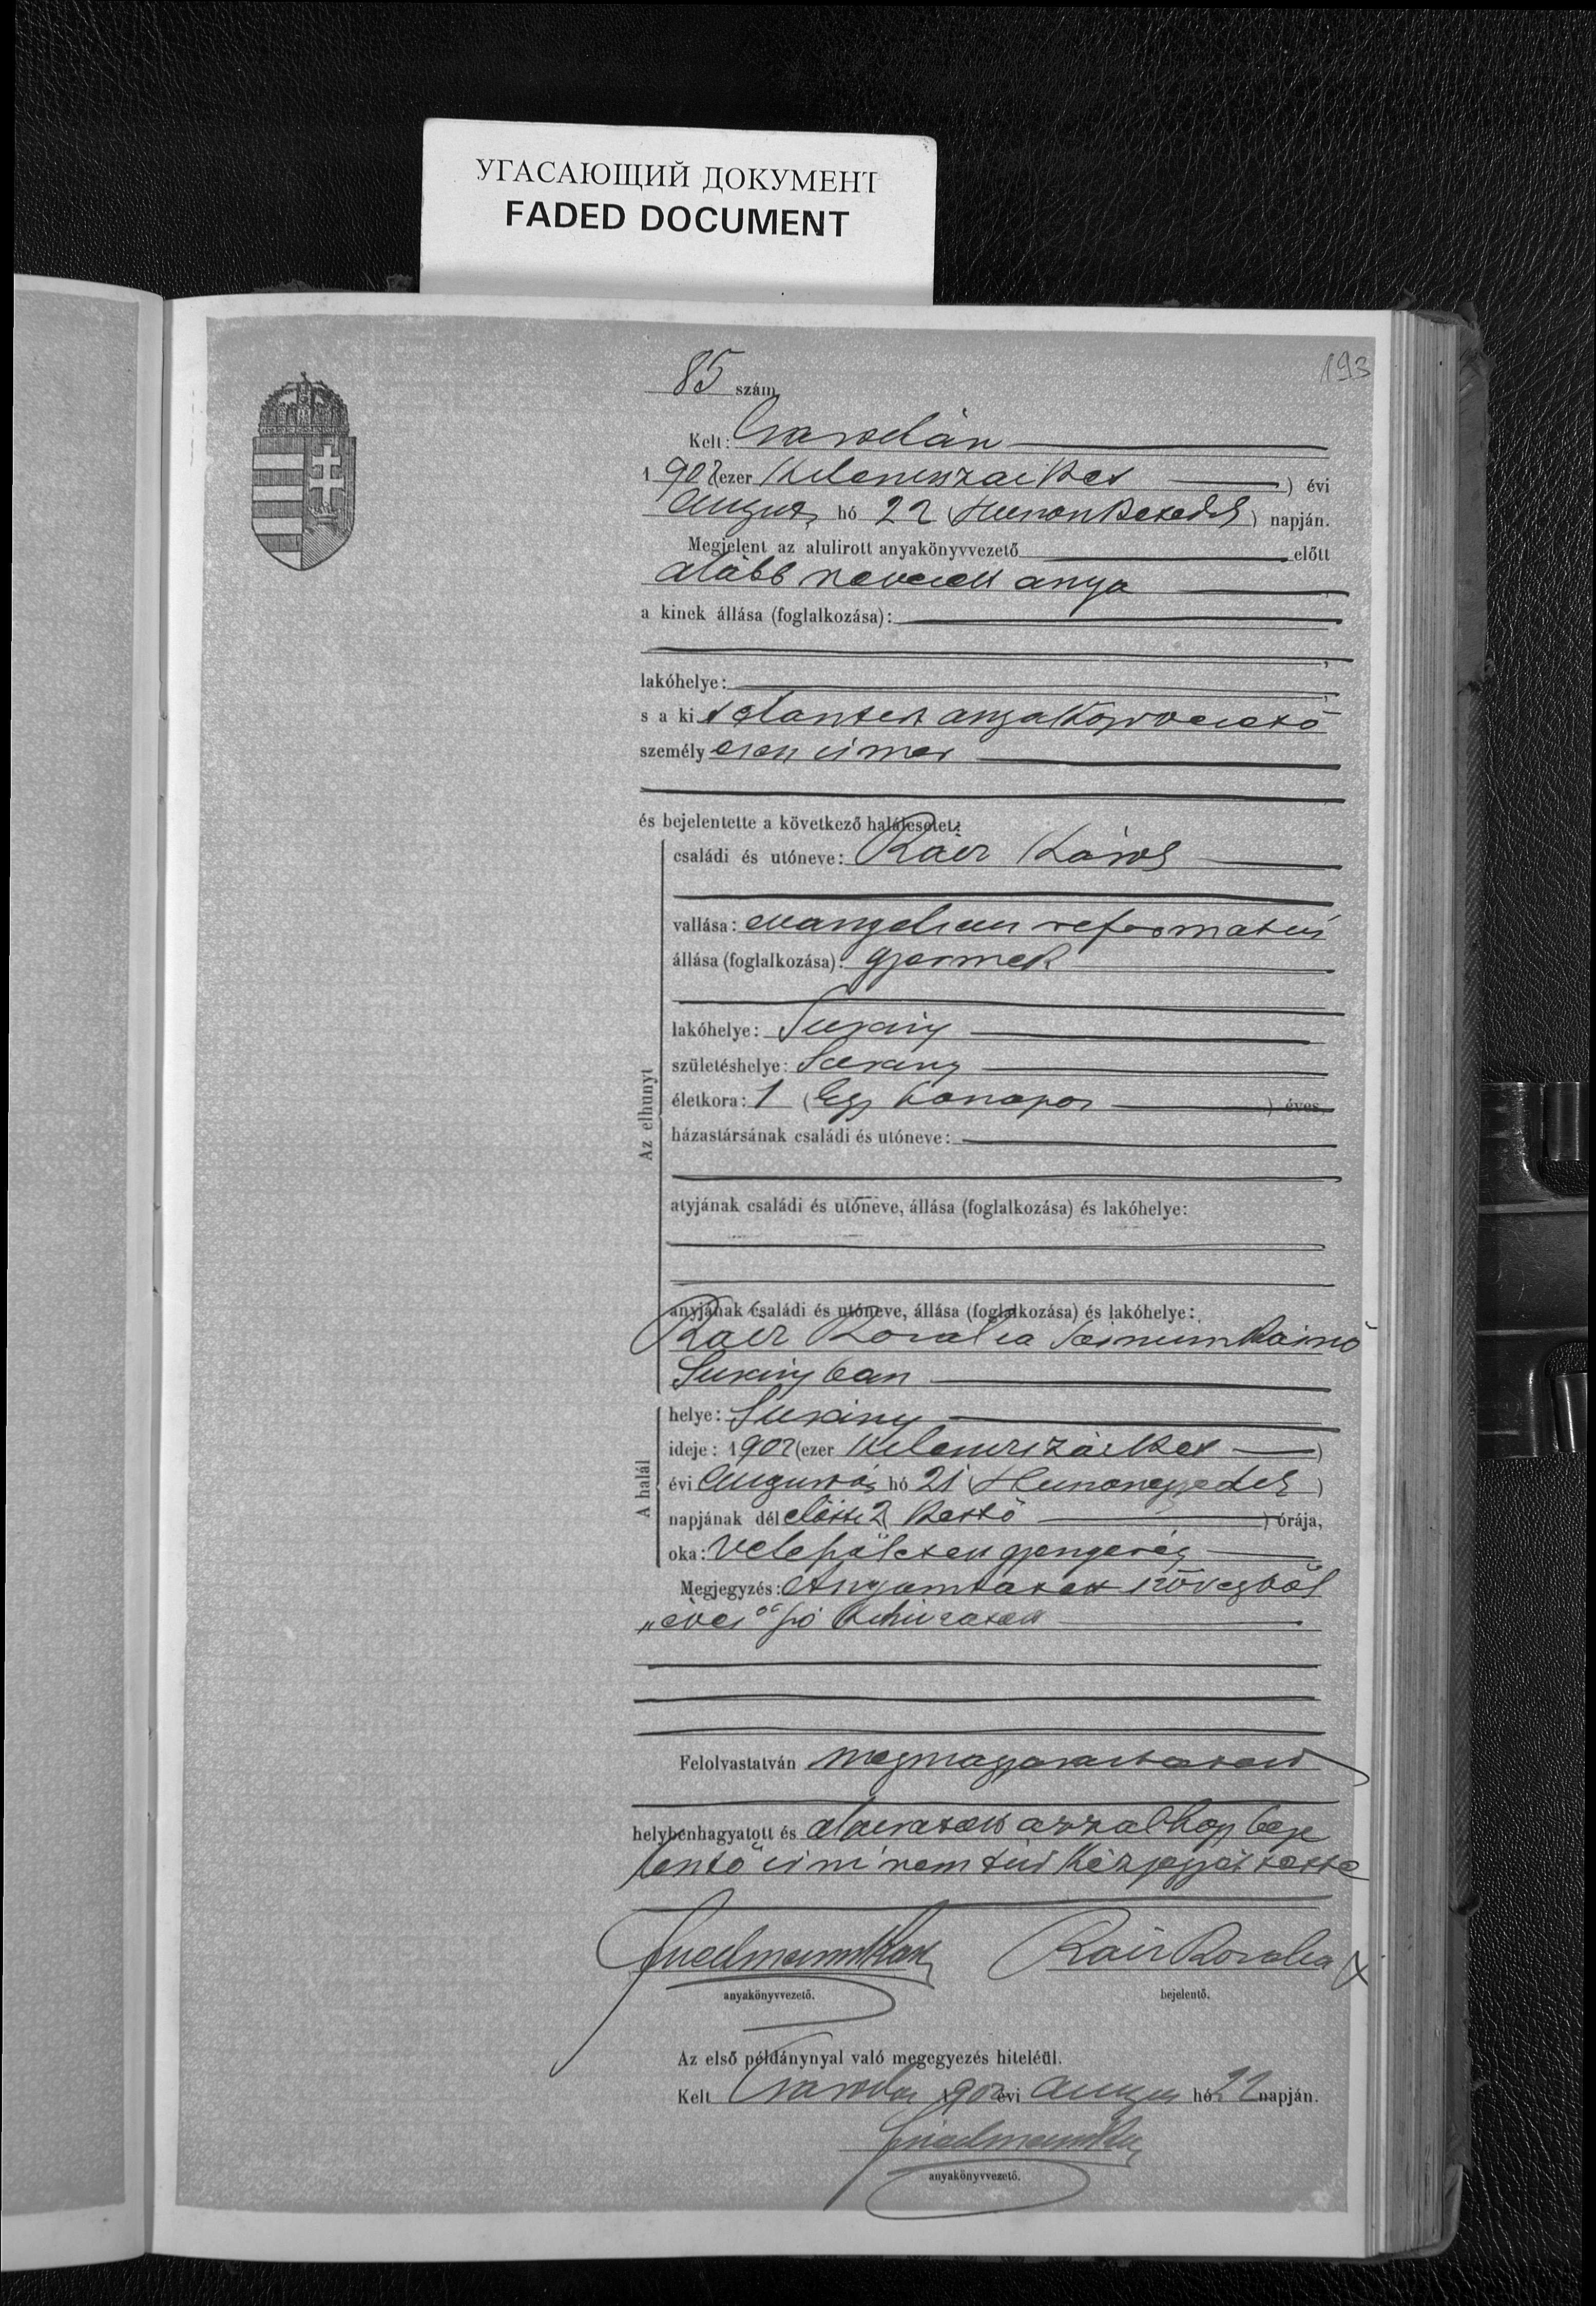 УГАСАЮЩИЙ ДОКУМЕНТ
FADED DOCUMENT
193
85 szám
Kelt: Csarodán
1902 (ezer kilenczszázkét) évi
augus hó 22 (huszonkettedik) napján.
Megjelent az alulirott anyakönyvvezető előtt
alább nevezett anya
a kinek állása (foglalkozása):
lakóhelye:
s a ki anyakönyvvezető
személyesen ismer
és bejelentette a következő halálesetet:
Az elhunyt
családi és utóneve: Rácz Károly
vallása: evangelium reformatus
állása (foglalkozása): gyermek
lakóhelye: Surány
születéshelye: Surány
életkora: 1 (Egy hónapos) éves
házastársának családi és utóneve:
atyjának családi és utóneve, állása (foglalkozása) és lakóhelye:
anyjának családi és utóneve, állása (foglalkozása) és lakóhelye:
Rácz Rozália
Surányban
A halál
helye: Surány
ideje: 1902 (ezer kilenczszázkét)
évi augusztus hó 21 (huszonegyedik)
napjának délelőtti 2 (kettő) órája,
oka: veleszületett gyengeség
Megjegyzés: A nyomtatott szövegből
„éves" szó kihúzatott
Felolvastatván megmagyaráztatott
helybenhagyatott és aláiratott azzal hogy beje
lentő irni nem tud kézjegyét tette
anyakönyvvezető.
Rácz Rozália x
bejelentő.
Az első példánynyal való megegyezés hiteléül.
Kelt Csarodán 1902 évi augus hó 22 napján.
anyakönyvvezető.